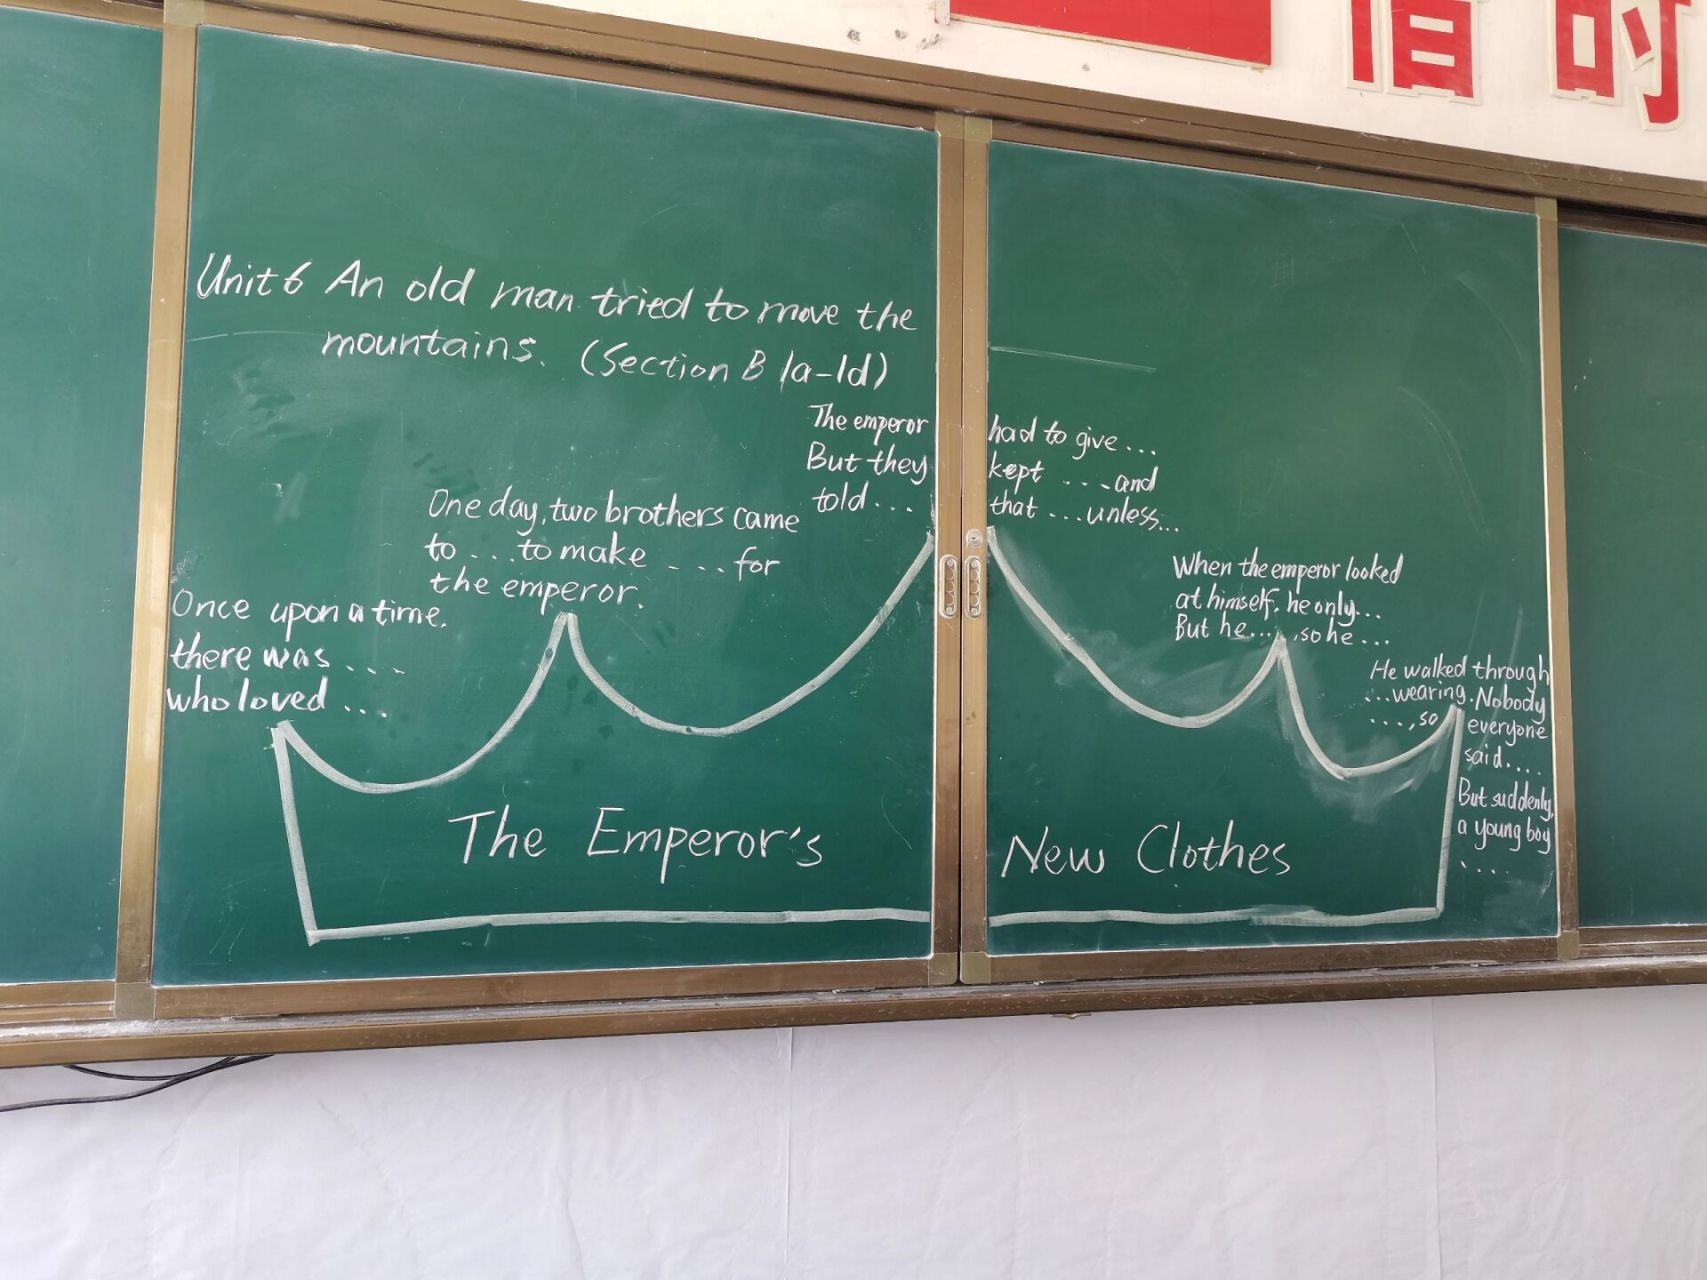 Unit 6 An old man tried to move the
mountains. (Section B 1a-1d)
Once upon a time.
there was ....
who loved ...
One day, two brothers came
to ... to make .... for
the emperor.
The emperor had to give ...
But they kept ....and
told... that ...unless...
When the emperor looked
at himself, he only...
But he...., so he ...
He walked through
...wearing. Nobody
....,so everyone
said....
But suddenly,
a young boy
....
The Emperor's New Clothes
时